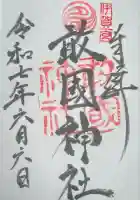 奉拝
伊賀一宮
敢國神社
令和七年六月六日